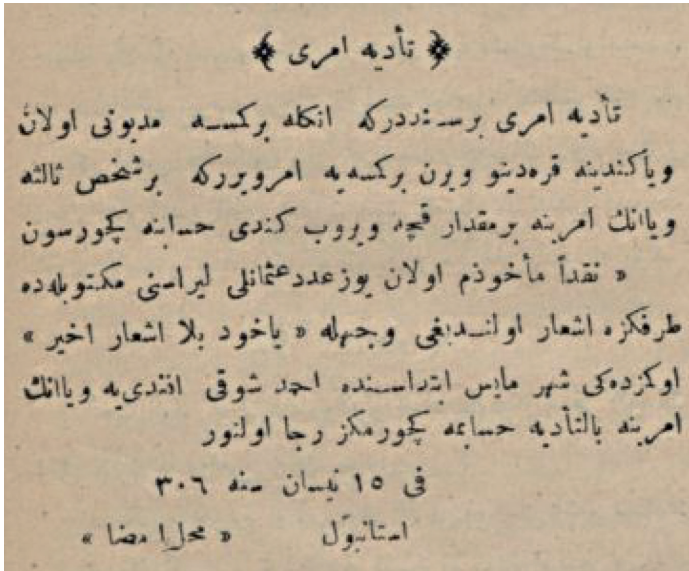 ﴿ تأديه امرى ﴾
تأديه امرى برسنددركه انكله بركمسه مديونى اولان
وياكندينه قره‌ديتو ويرن بركمسه‌يه امرويرركه برشخص ثالثه
وياانك امرينه برمقدار قچه ويروب كندى حسابنه كچورسون
« نقداً مأخوذم اولان يوز عدد عثمانلى ليراسنى مكتوبله‌ده
طرفكزه اشعار اولنديغى وجهله « ياخود بلا اشعار اخير »
اوكمزده‌كى شهر مايس ابتداسنده احمد شوقى افندى‌يه وياانك
امرينه بالتأديه حسابمه كچورمكز رجا اولنور
فى ١٥ نيسان سنه ٣٠٦
استانبول « محل امضا »